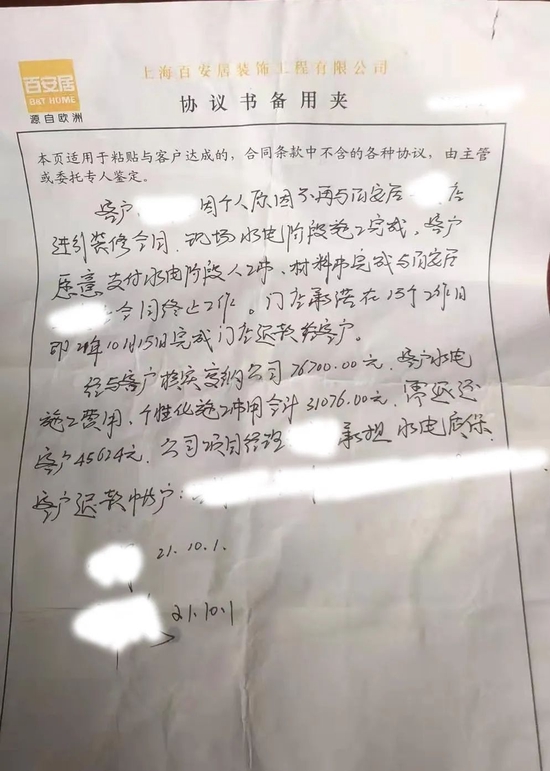 百安居
B&T HOME
源自欧洲
上海百安居装饰工程有限公司
协议书备用夹
本页适用于粘贴与客户达成的，合同条款中不含的各种协议，由主管
或委托专人鉴定。
客户 因个人原因不再与百安居 店
进行装修合同，现场水电阶段施工完成，客户
愿意支付水电阶段人工费，材料费完成与百安居
合同终止工作。门店承诺在15个工作日
即21年10月15日完成门店退款给客户。
经与客户核实交纳公司76700.00元，客户水电
施工费用、个性化施工费用合计31076.00元，需返还
客户45624元，公司项目经理 承担水电质保
客户退款帐户：
21.10.1.
21.10.1